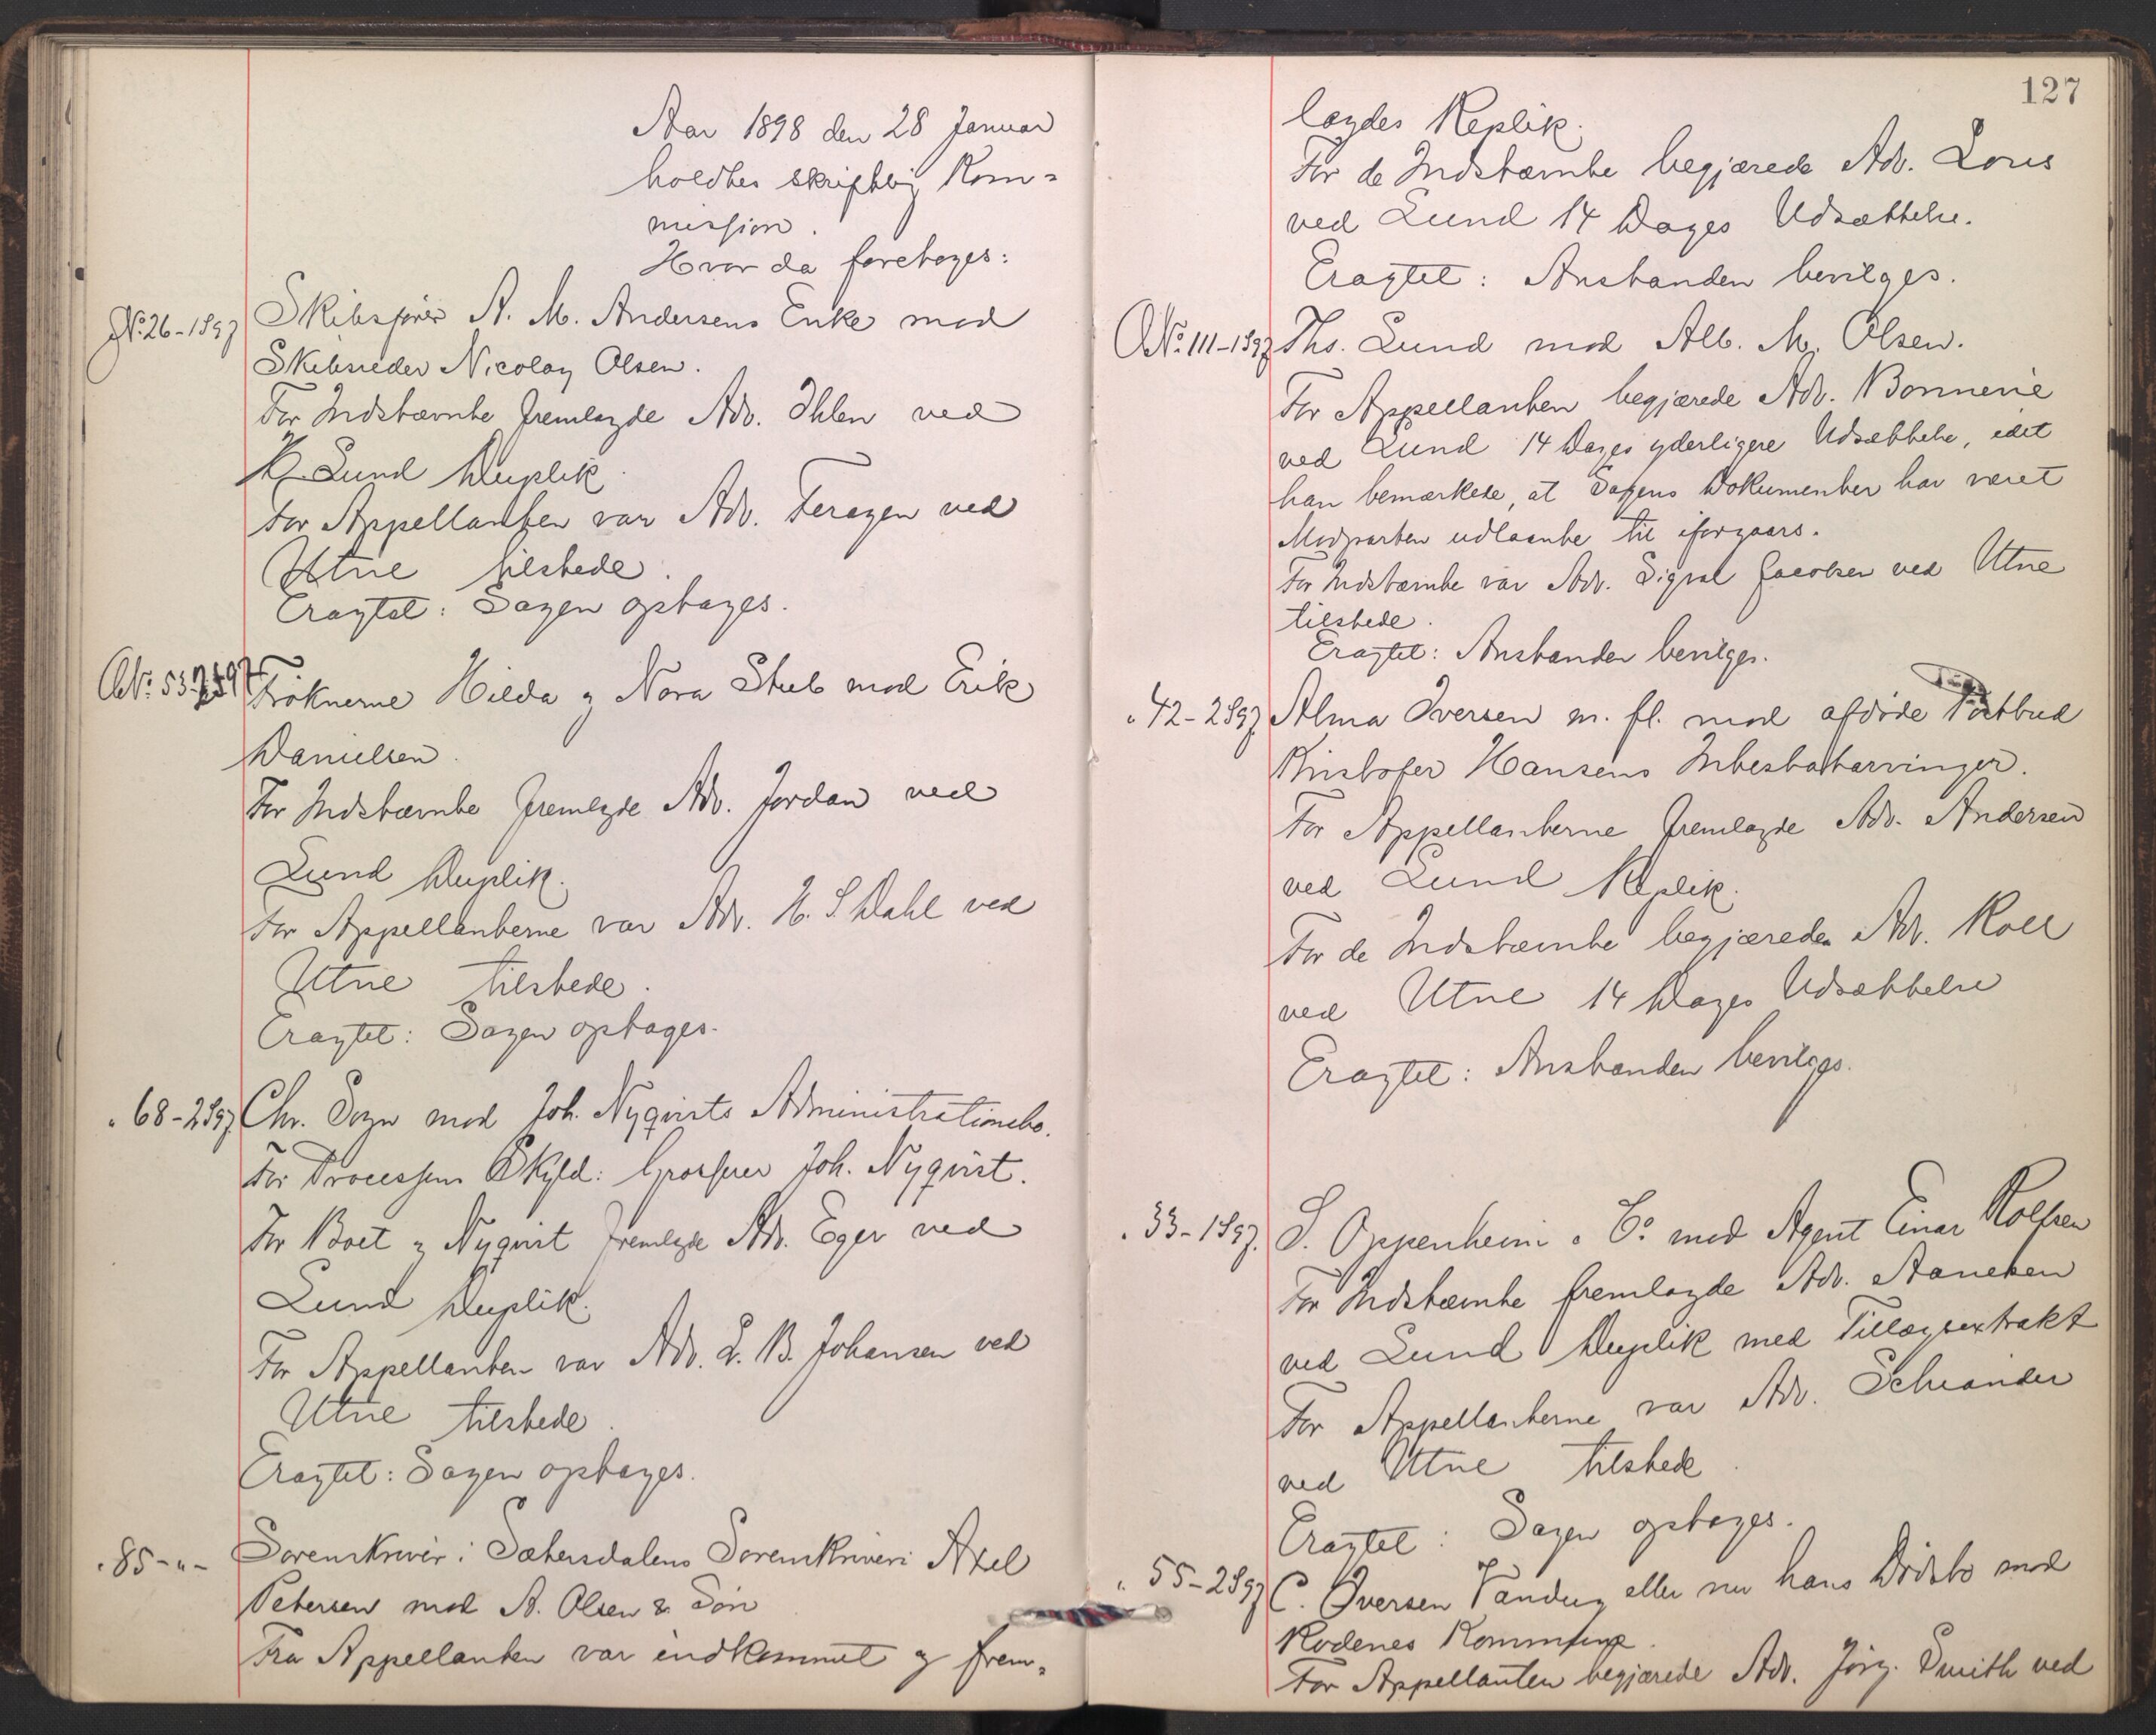 Aar 1898 den 28 Januar
holdtes skriftlig Kom=
mission.
Hvor da foretoges:
No. 26-1897 Skibsfører A. M. Andersens Enke mod
Skibsreder Nicolay Olsen.
For Indstævnte fremlagde Adv. Ihlen ved
Lund Duplik.
For Appellanten var Adv. Feragen ved
Utne tilstede.
Eragtet: Sagen optages.
No. 53-2897 Frøknerne Hilda og Nora Stub mod Erik
Danielsen.
For Indstævnte fremlagde Adv. Jordan ved
Lund Duplik.
For Appellanterne var Adv. H. S. Dahl ved
Utne tilstede.
Eragtet: Sagen optages.
" 68-2897 Chr. Sogn mod Joh. Nyqvists Administrationsbo.
For Processens Skyld: Grosserer Joh. Nyqvist.
For Boet og Nyqvist fremlagde Adv. Eger ved
Lund Duplik.
For Appellanten var Adv. L. B. Johansen ved
Utne tilstede.
Eragtet: Sagen optages.
" 85-"- Sorenskriver i Sætersdalens Sorenskriveri Axel
Petersen mod A. Olsen & Søn
Fra Appellanten var indkommet og frem=
127
lagdes Replik.
For de Indstævnte begjærede Adv. Lous
ved Lund 14 Dages Udsættelse.
Eragtet: Anstanden bevilges.
No. 111-1897 Ths. Lund mod Alb. M. Olsen.
For Appellanten begjærede Adv. Bonnevie
ved Lund 14 Dages yderligere Udsættelse, idet
han bemærkede, at Sagens Dokumenter har været
Modparten udlaante til iforgaars.
For Indstævnte var Adv. Sigval Jacobsen ved Utne
tilstede.
Eragtet: Anstanden bevilges.
" 42-2897 Alma Iversen m. fl. mod afdøde Postbud
Kristofer Hansens Intestatarvinger.
For Appellanterne fremlagde Adv. Andersen
ved Lund Replik.
For de Indstævnte begjærede Adv. Roll
ved Utne 14 Dages Udsættelse
Eragtet: Anstanden bevilges.
" 33-1897. S. Oppenheim & Co. mod Agent Einar Rolfsen
For Indstævnte fremlagde Adv.
ved Lund Duplik med Tillægsextrakt
For Appellanterne var Adv. Schiander
ved Utne tilstede.
Eragtet: Sagen optages.
" 55-2897 C. Iversen eller nu hans Dødsbo mod
Rødenes Kommune.
For Appellanten begjærede Adv. Jørg. Smith ved